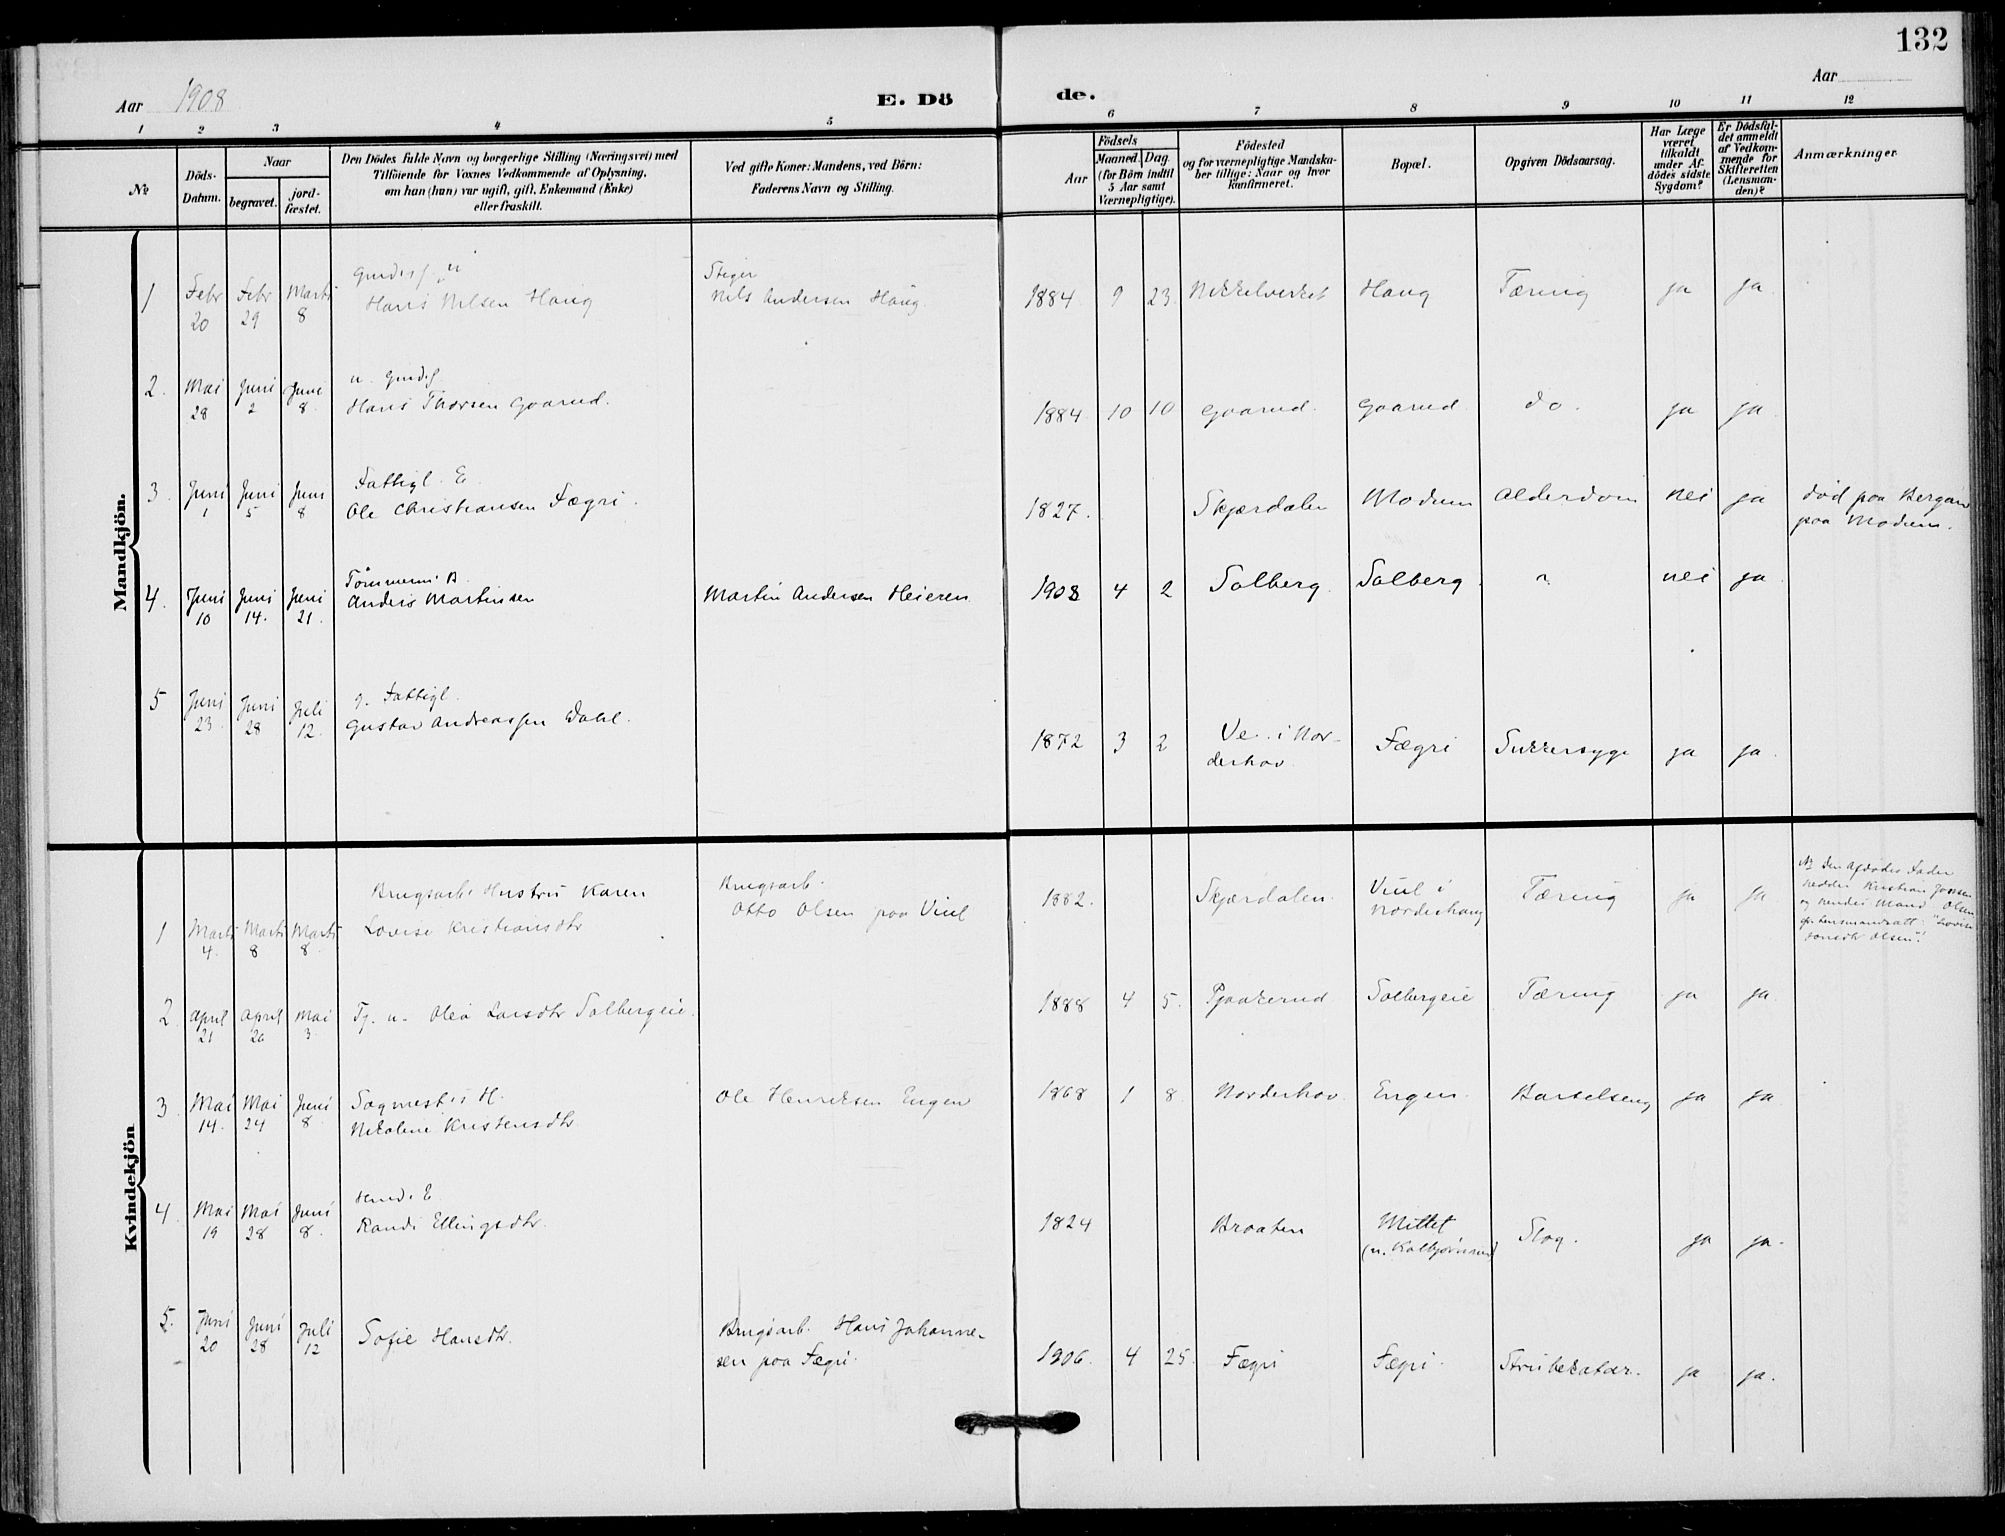 132
Aar 1908
E. Dö
de.
Aar
1 2 3 4 5 6 7 8 9 10 11 12
№
Döds-
Datum.
Naar
begravet.
jord-
fæstet.
Den Dödes fulde Navn og borgerlige Stilling (Næringsvei) med
Tilföiende for Voxnes Vedkommende af Oplysning,
om han (hun) var ugift, gift, Enkemand (Enke)
eller fraskilt.
Ved gifte Koner: Mandens, ved Börn:
Faderens Navn og Stilling.
Födsels
Aar
Maaned. Dag.
(for Börn indtil
5 Aar samt
Værnepligtige).
Födested
og for værnepligtige Mandska-
ber tillige: Naar og hvor
konfirmeret.
Bopæl.
Opgiven Dödsaarsag.
Har Læge
været
tilkaldt
under Af-
dödes sidste
Sygdom?
Er Dödsfal-
det anmeldt
af Vedkom-
mende for
Skifteretten
(Lensman-
den)?
Anmærkninger.
Mandkjön.
1 Febr 20 Febr 29 Marts 8
Hans Nilsen Haug
Stiger
Nils Andersen Haug
1884 9 23 Nikkelverket Haug Tæring ja ja
2. Mai 28 Juni 2 Juni 8
u. Gmds
Hans Thorsen Gaarud.
1884 10 10 Gaarud. Gaarud do. ja ja
3. Juni 1 Juni 5 Juni 8
Fattigl. E.
Ole Christiansen Fægri.
1827. Skjærdalen Modum Alderdom nei ja død paa Bergan
paa Modum.
4. Juni 10 Juni 14. Juni 21.
Anders Martinsen
Martin Andersen Heieren
1908 4 2 Solberg. Solberg. ? nei ja
5 Juni 23 Juni 28 Juli 12.
g. Fattigl.
Gustav Andreassen Dahl.
1872 3 2 i Nor-
derhov. Fægri Sukkersyge ja ja.
Kvindekjön
1 Marts 4. Marts 8 Marts 8
Brugsarb. Hustru Karen
Lovise Kristiansdtr
Brugsarb.
Otto Olsen paa Viul
1882. Skjærdalen. Viul i
Norderhaug Tæring ja ja.
Den Afdødes Fader
hedder Kristian Jonsen
og hendes Mand Olsen
2 April 21 April 26 Mai 3
Tj. u. Olea Larsdtr Solbergeie.
1888 4 5. Solbergeie Tæring ja ja
3 Mai 14. Mai 24 Juni 8
Sagmest.s H.
Nikoline Kristensdtr
Ole Henriksen Engen
1868 1 8 Norderhov Engen. Barselseng ja ja
4 Mai 19 Mai 28 Juni 8
Randi Ellingsdtr.
1824 Braaten Mittet
(u. Kolbjørnsrud) Slag. ja ja.
5. Juni 20 Juni 28 Juli 12
Sofie Hansdtr.
Brugsarb. Hans Johanne-
sen paa Fægri.
1906. 4 25. Fægri Fægri. Strubekatar. ja ja.